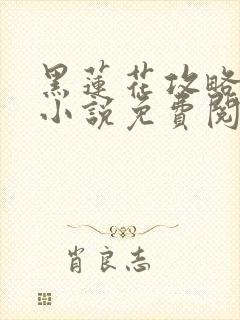 黑蓮花攻略
小說免費閱
肖良志